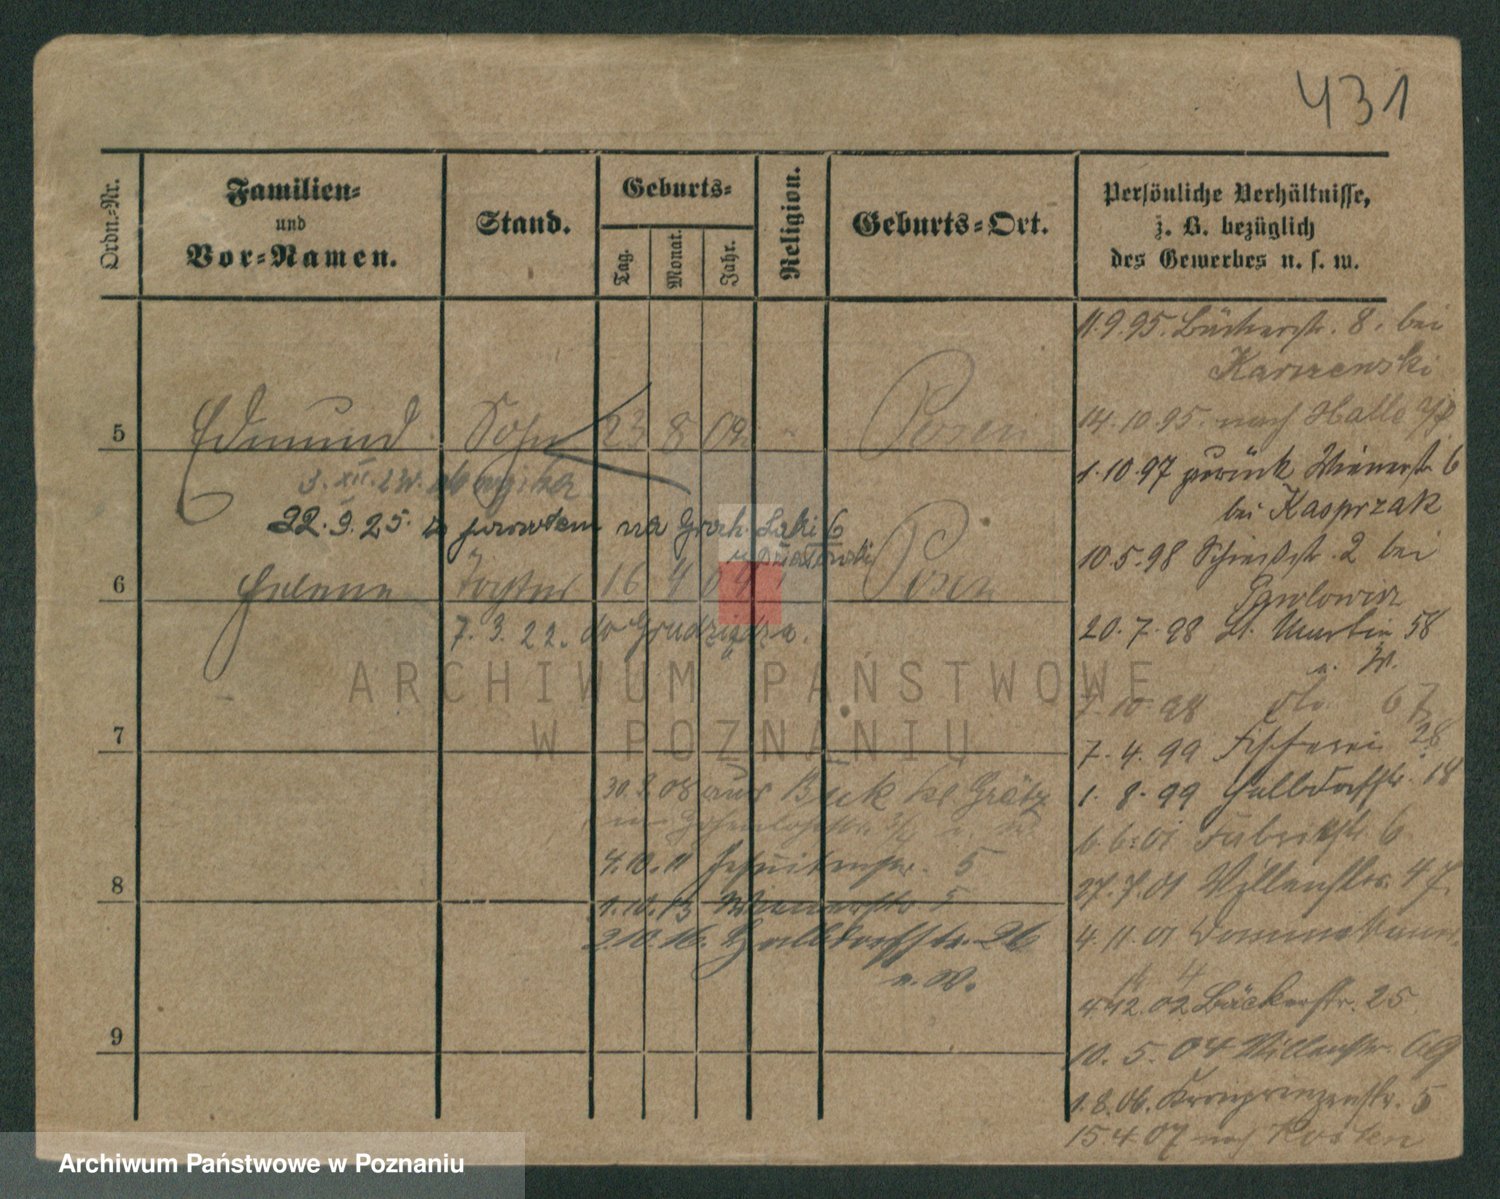 431
Ordn.-Nr.
Familien-
und
Vor-Namen.
Stand.
Geburts-
Tag.
Monat.
Jahr.
Religion.
Geburts-Ort.
Persönliche Verhältnisse,
z. B. bezüglich
des Gewerbes u. s. w.
5 Edmund Sohn 23 8 09 " Posen
22.9.25. z powrotem na Groch. Łąki 6
6 Helene Tochter 16 4 04 Posen
7.3.22. do Grudziądza.
7
30.3.08 aus Buk Kr. Grätz
4.10.11 Jesuitenstr. 5
8
1.10.13 Wienerstr 5
2.10.16. Halldorfstr. 26
u. W.
9
11.9.95. Bäckerstr. 8. bei
Karczenski
14.10.95. nach Halle
1.10.97 zurück Wienerstr. 6
bei Kasprzak
10.5.98 Schießstr. 2 bei
Pawlowicz
20.7.98 St. Martin 58
u. W.
7.10.98 do. 67
7.4.99 Fischerei 28
1.8.99 Halbdorfstr. 18
6.6.01 Fabrikstr. 6
27.7.01 47
4.11.01 Dominikaner
4.12.02 Bäckerstr. 25
10.5.04 69
1.8.06. Kronprinzenstr. 5
15.4.07 nach Kosten
ARCHIWUM PAŃSTWOWE
W POZNANIU
Archiwum Państwowe w Poznaniu